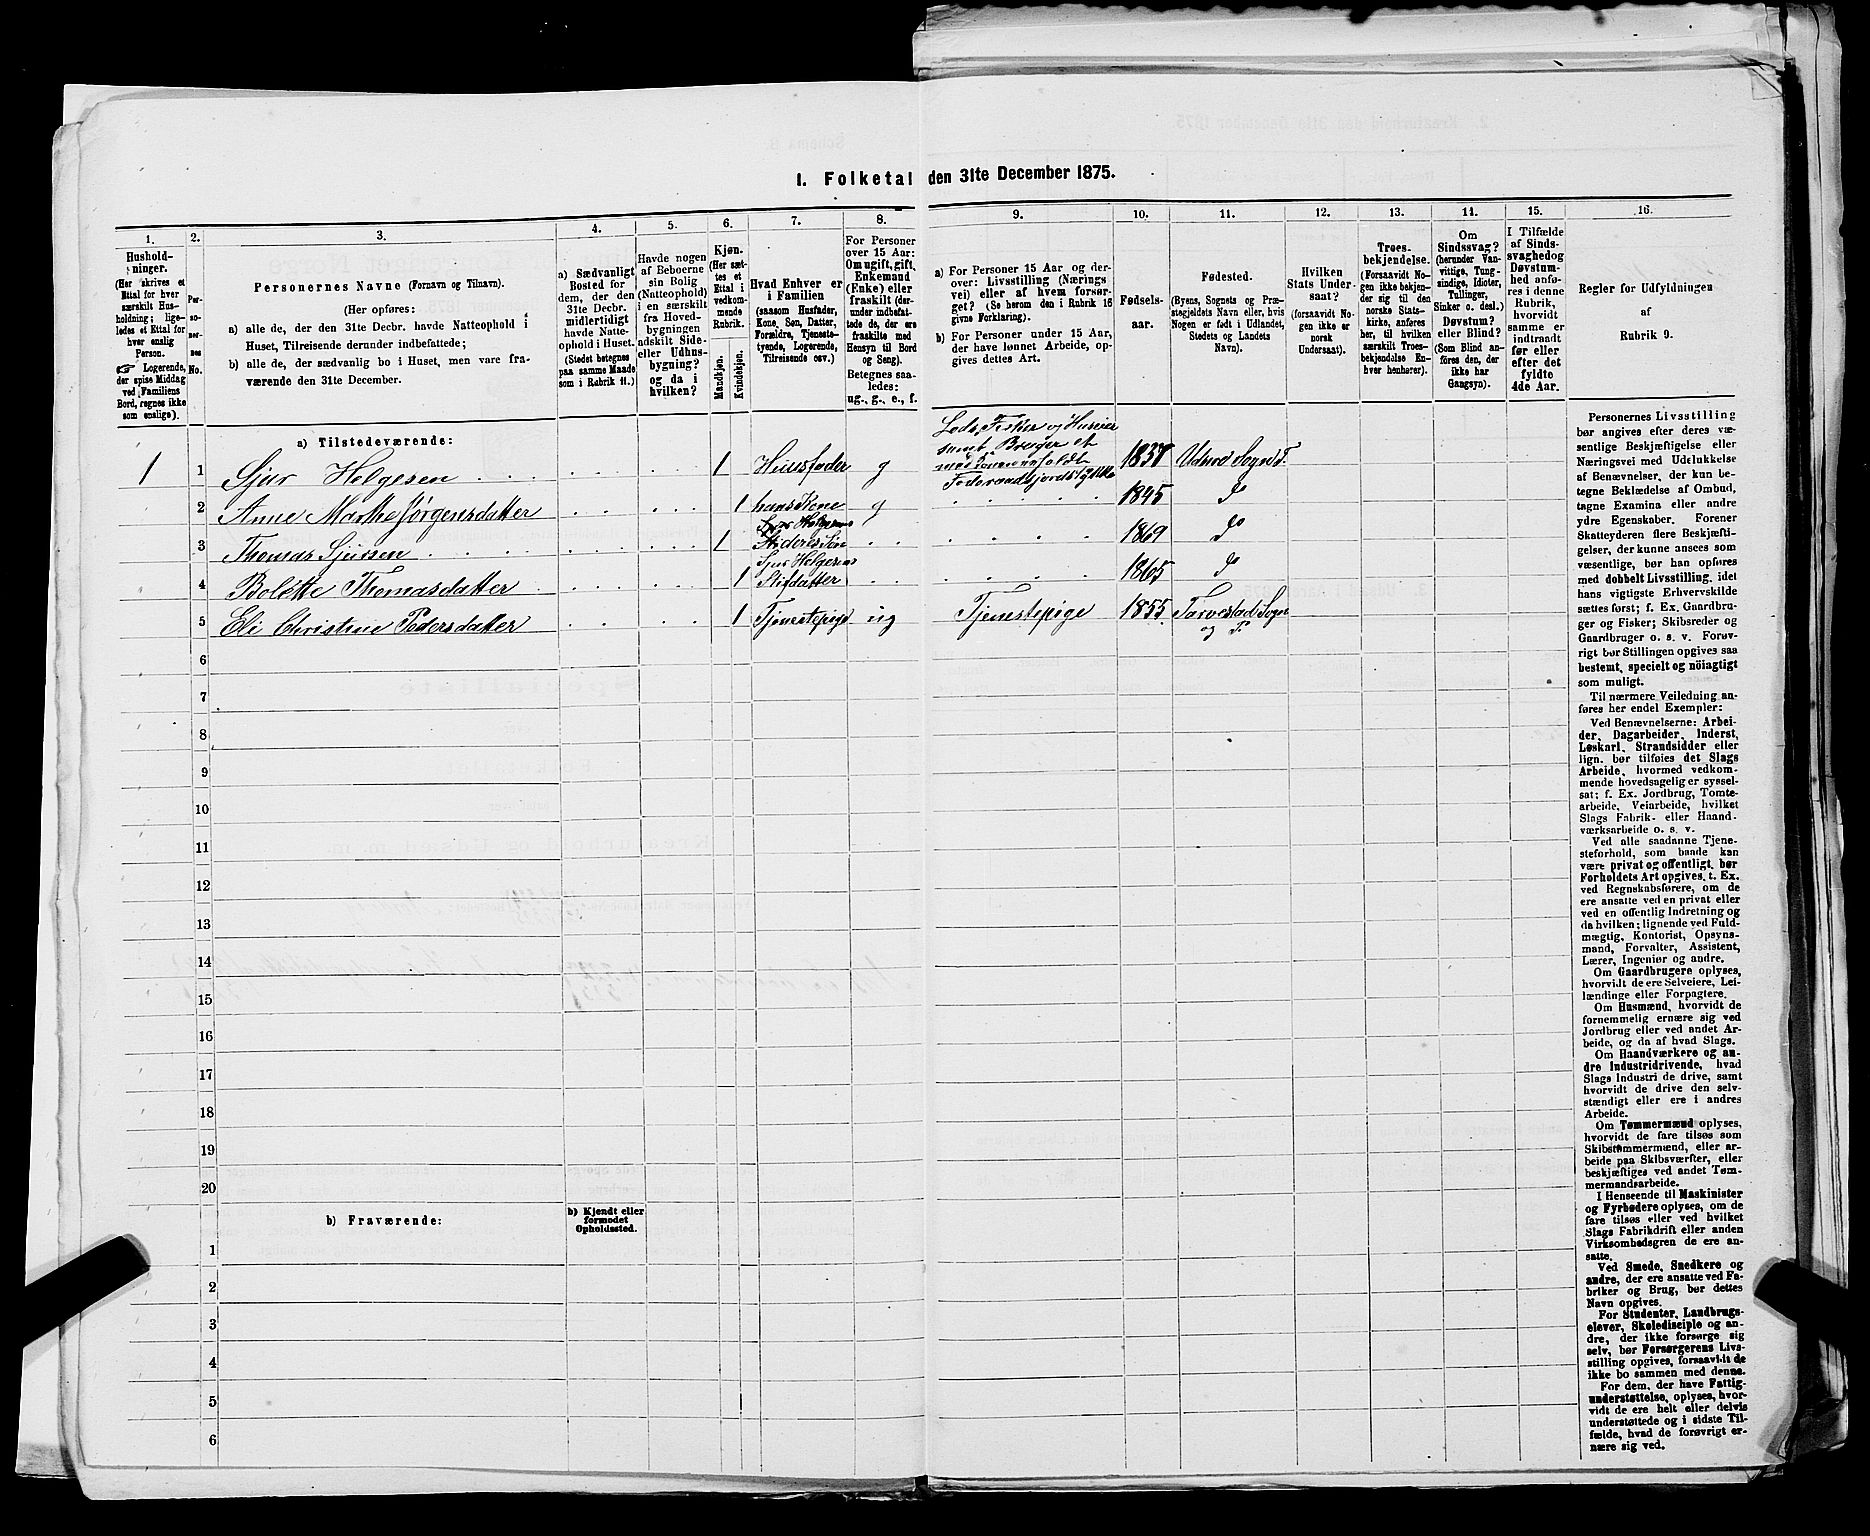 1. Folketal den 31te December 1875.
1.
Hushold-
ninger.
(Her skrives et
Ettal for hver
særskilt Hus-
holdning; lige-
ledes et Ettal for
hver enslig
Person.
☞ Logerende,
der spise Middag
ved Familiens
Bord, regnes ikke
som enslige).
2.
Per-
so-
ner-
nes
No.
3.
Personernes Navne (Fornavn og Tilnavn).
(Her opføres:
a) alle de, der den 31te Decbr. havde Natteophold i
Huset, Tilreisende derunder indbefattede;
b) alle de, der sædvanlig bo i Huset, men vare fra-
værende den 31te December.
4.
a) Sædvanligt
Bosted for
dem, der den
31te Decbr.
midlertidigt
havde Natte-
ophold i Huset.
(Stedet betegnes
paa samme Maade
som i Rubrik 11.)
5.
Havde nogen
af Beboerne
sin Bolig
(Natteophold)
i en særskilt
fra Hoved-
bygningen
adskilt Side-
eller Udhus-
bygning?
og da i
hvilken?
6.
Kjøn.
(Her sæt-
tes et
Ettal i
vedkom-
mende
Rubrik.
Mandkjøn.
Kvindekjøn.
7.
Hvad Enhver er
i Familien
(saasom Husfader,
Kone, Søn, Datter,
Forældre, Tjeneste-
tyende, Logerende,
Tilreisende osv.)
8.
For Personer
over 15 Aar:
Om ugift, gift,
Enkemand
(Enke) eller
fraskilt (der-
under indbefat-
tede de, der ere
fraskilte med
Hensyn til Bord
og Seng).
Betegnes saa-
ledes:
ug., g., e., f.
9.
a) For Personer 15 Aar og der-
over: Livsstilling (Nærings
vei) eller af hvem forsør-
get? (Se herom den i Rubrik 16
givne Forklaring).
b) For Personer under 15 Aar,
der have lønnet Arbeide, op-
gives dettes Art.
10.
Fødsels-
aar.
11.
Fødested.
(Byens, Sognets og Præ-
stegjeldets Navn eller, hvis
Nogen er født i Udlandet,
Stedets og Landets
Navn).
12.
Hvilken
Stats Under-
saat?
(forsaavidt No-
gen ikke er
norsk
Undersaat).
13.
Troes-
bekjendelse.
(Forsaavidt No-
gen ikke bekjen-
der sig til den
norske Stats-
kirke, anføres
her, til hvilken
særskilt Troes-
bekjendelse En-
hver henhører).
14.
Om
Sindssvag?
(herunder Van-
vittige, Tung-
sindige, Idioter,
Tullinger,
Sinker o. desl.)
Døvstum?
eller Blind?
(Som Blind an-
føres den, der
ikke har
Gangsyn).
15.
I Tilfælde
af Sinds-
svaghed og
Døvstum-
hed anfø-
res i denne
Rubrik,
hvorvidt
samme er
indtraadt
før eller
efter det
fyldte
4de Aar.
16.
Regler for Udfyldningen
af
Rubrik 9.
a) Tilstedeværende:
1 1 Sjur Helgesen 1 Huusfader g Lods, Fisker og Huseier
samt Bruger et
1837 Udsire Sogn
2 Anne Marthe Jørgensdatter 1 hans Kone g 1845 do
3 Thomas Sjursen 1 Sjur Helgesens Søn 1869 do
4 Bolette Thomasdatter 1 Sjur Helgesens Stifdatter 1865 do
5 Eli Christine Pedersdatter 1 Tjenestepige ug Tjenestepige 1855 Torvestad Sogn
og P.
6
7
8
9
10
11
12
13
14
15
16
17
18
19
20
b) Fraværende:
b) Kjendt eller
formodet
Opholdssted.
1
2
3
4
5
6
Personernes Livsstilling
bør angives efter deres væ-
sentlige Beskjæftigelse eller
Næringsvei med Udelukkelse
af Benævnelser, der kun be-
tegne Beklædelse af Ombud,
tagne Examina eller andre
ydre Egenskaber. Forener
Skatteyderen flere Beskjæfti-
gelser, der kunne ansees som
væsentlige, bør han opføres
med dobbelt Livsstilling, idet
hans vigtigste Erhvervskilde
sættes først; f. Ex. Gaardbru-
ger og Fisker; Skibsreder og
Gaardbruger o. s. v. Forøv-
rigt bør Stillingen opgives saa
bestemt, specielt og nöiagtigt
som muligt.
Til nærmere Veiledning an-
føres her endel Exempler:
Ved Benævnelserne: Arbei-
der, Dagarbeider, Inderst,
Løskarl, Strandsidder eller
lign. bør tilføies det Slags
Arbeide, hvormed vedkom-
mende hovedsagelig er syssel-
sat; f. Ex. Jordbrug, Tomte-
arbeide, Veiarbeide, hvilket
Slags Fabrik- eller Haand-
værksarbeide o. s. v.
Ved alle saadanne Tjene-
steforhold, som baade kan
være privat og offentligt, bør
Forholdets Art opgives. t. Ex.
ved Regnskabsførere, om de
ere ansatte ved en privat eller
ved en offentlig Indretning og
da hvilken; lignende ved Fuld-
mægtig, Kontorist, Opsyns-
mand, Forvalter, Assistent,
Lærer, Ingeniør og andre.
Om Gaardbrugere oplyses,
hvorvidt de ere Selveiere, Lei-
lændinge eller Forpagtere.
Om Husmænd, hvorvidt de
fornemmelig ernære sig ved
Jordbrug eller ved andet Ar-
beide, og da af hvad Slags.
Om Haandværkere og an-
dre Industridrivende, hvad
Slags Industri de drive, samt
hvorvidt de drive den selv-
stændigt eller ere i andres
Arbeide.
Om Tømmermænd oplyses,
hvorvidt de fare tilsøs som
Skibstømmermænd, eller ar-
beide paa Skibsværfter, eller
beskjæftiges ved andet Tøm-
mermandsarbeide.
I Henseende til Maskinister
og Fyrbødere oplyses, om de
fare tilsøs eller ved hvilket
Slags Fabrikdrift eller anden
Virksomhedsgren de ere an-
satte.
Ved Smede, Snedkere og
andre, der ere ansatte ved Fa-
briker og Brug, bør dettes
Navn opgives.
For Studenter, Landbrugs-
elever, Skoledisciple og an-
dre, der ikke forsørge sig
selv, bør Forsørgerens Livs-
stilling opgives, forsaavidt de
ikke bo sammen med denne.
For dem, der have Fattig-
understøttelse, oplyses, hvor-
vidt de ere helt eller delvis
understøttede og i sidste Til-
fælde, hvad de forøvrigt er-
nære sig ved.